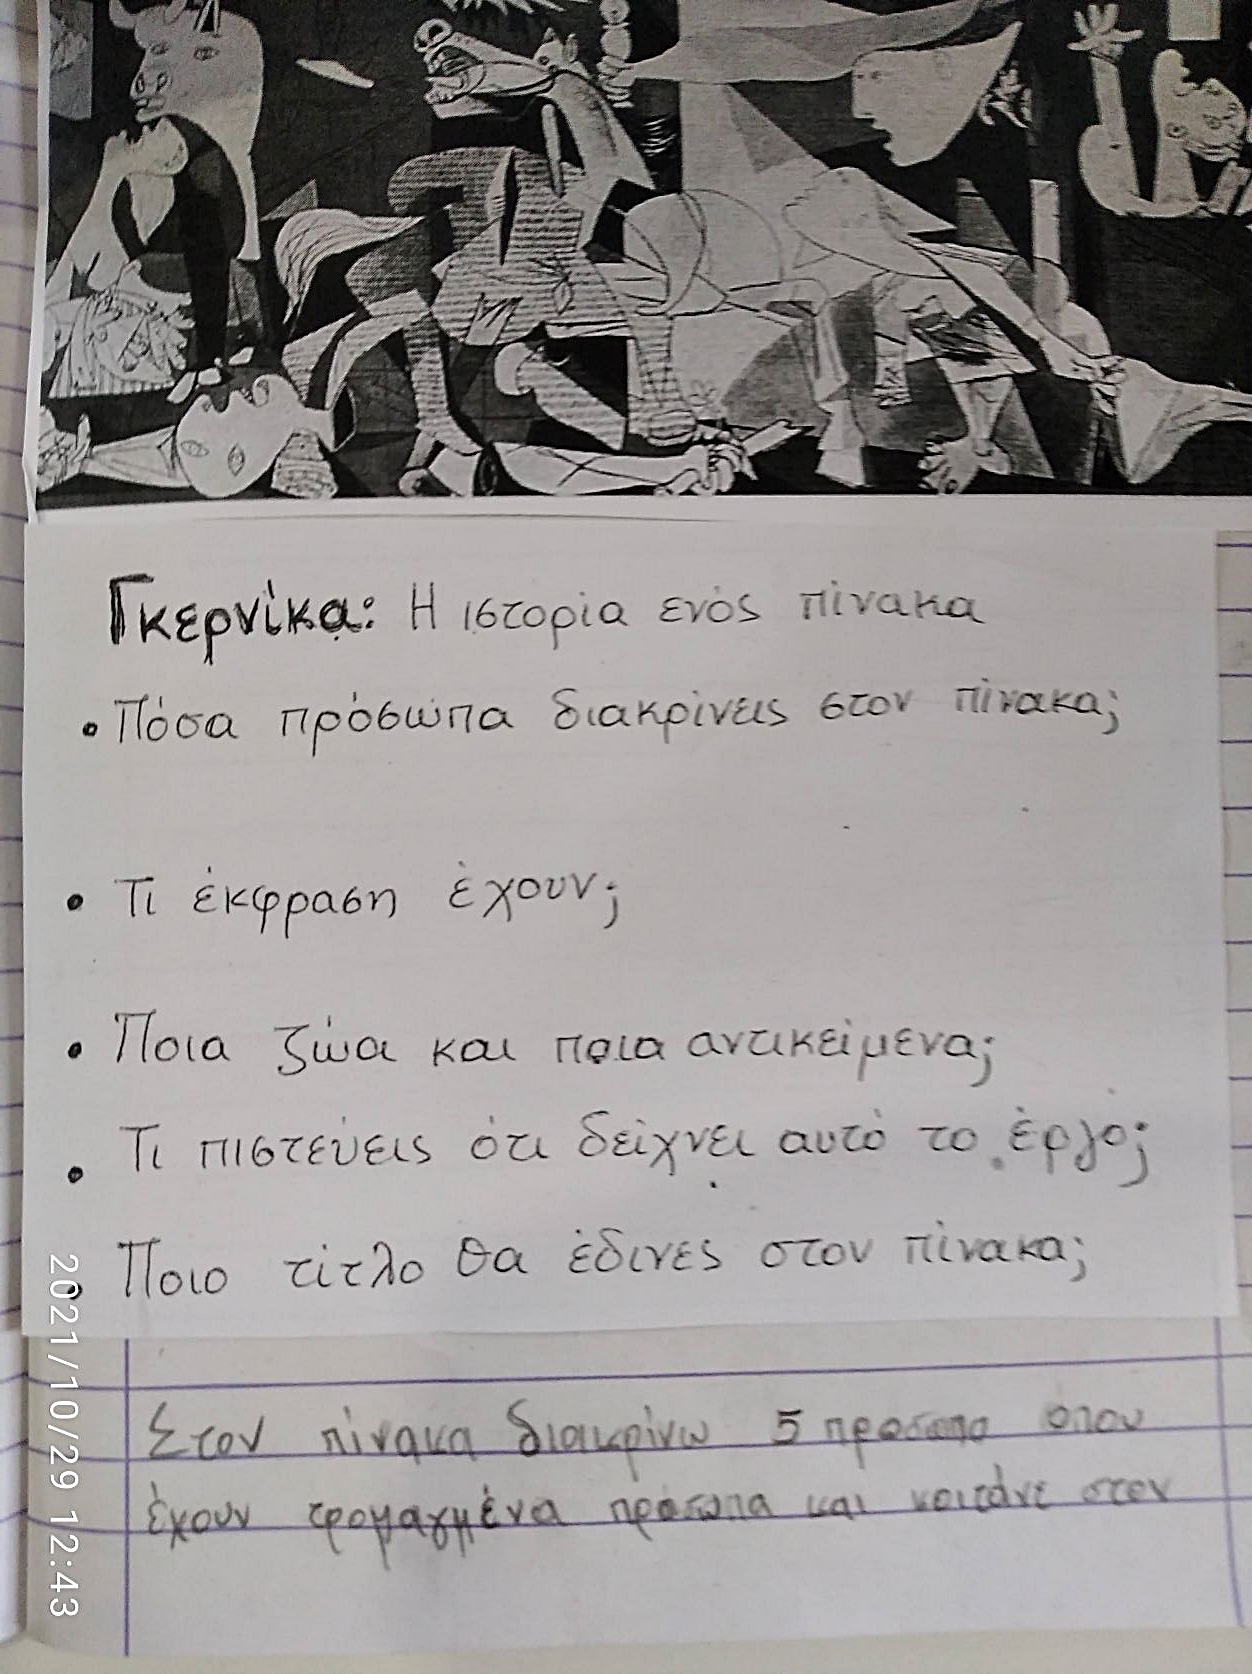 Γκερνίκα: Η ιστορία ενός πίνακα
• Πόσα πρόσωπα διακρίνεις στον πίνακα;
• Τι έκφραση έχουν;
• Ποια ζώα και ποια αντικείμενα;
• Τι πιστεύεις ότι δείχνει αυτό το έργο;
• Ποιο τίτλο θα έδινες στον πίνακα;
Στον πίνακα διακρίνω 5 πρόσωπα όπου
έχουν τρομαγμένα πρόσωπα και κοιτάνε στον
2021/10/29 12:43